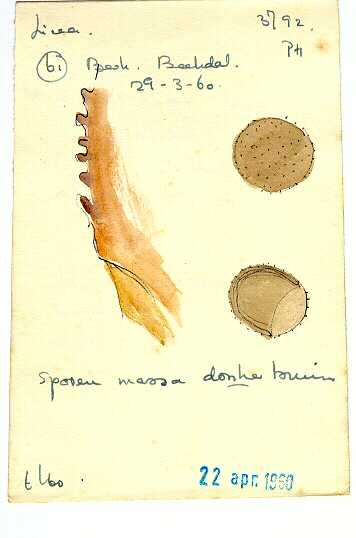 Licea.
3792.
PH
(b) Beek. Beekdal.
29-3-60.
Sporen massa donker bruin
t/60
22 apr. 1960